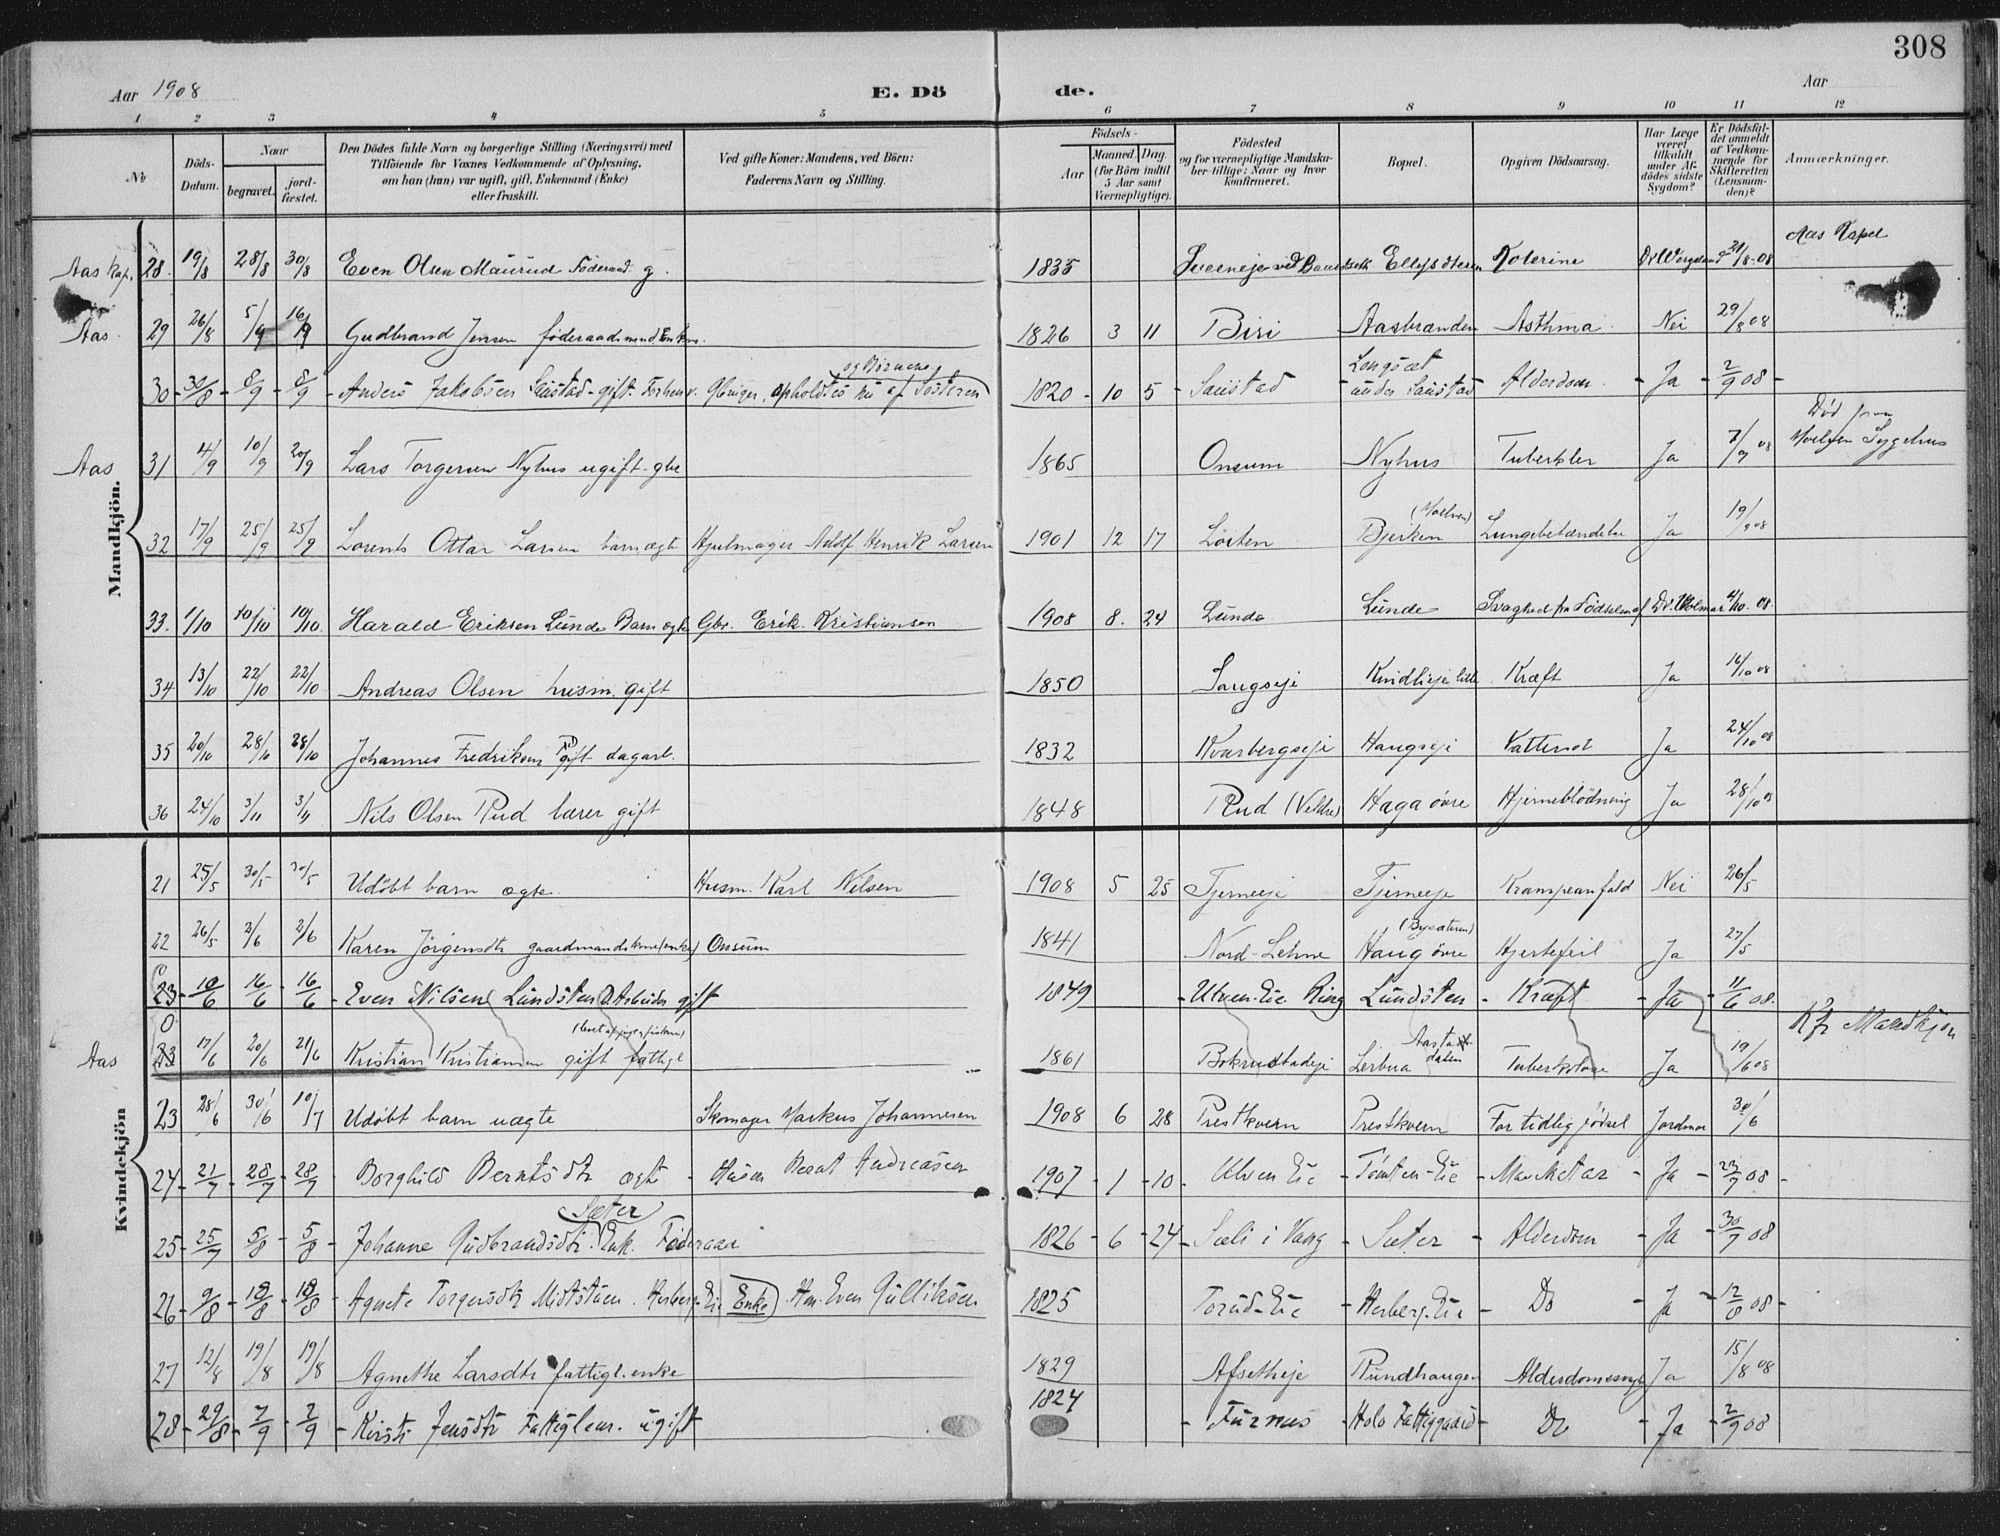 308
Aar 1908 E. Dö de. Aar
1 2 3 4 5 6 7 8 9 10 11 12
No
Döds-Datum.
Naar
begravet.
jord-fæstet.
Den Dödes fulde Navn og borgerlige Stilling (Næringsvei) med
Tilföiende for Voxnes Vedkommende af Oplysning,
om han (hun) var ugift, gift, Enkemand (Enke)
eller fraskilt.
Ved gifte Koner: Mandens, ved Börn:
Faderens Navn og Stilling.
Födsels-
Aar
Maaned. Dag.
(for Börn indtil
5 Aar samt
Værnepligtige).
Födested
og for værnepligtige Mandska-
ber tillige: Naar og hvor
konfirmeret.
Bopæl.
Opgiven Dödsaarsag.
Har Læge
været
tilkaldt
under Af-
dödes sidste
Sygdom?
Er Dödsfal-
det anmeldt
af Vedkom-
mende for
Skifteretten
(Lensman-
den)?
Anmærkninger.
Mandkjön.
Aas Kap. 28. 19/8 28/8 30/8 Even Olsen Maurud Föderaad g. 1835 Ellefsæteren Kolerine 31/8-08 Aas Kapel
Aas 29 26/8 5/9 16/9 Gudbrand Jensen föderaadsmand Enkm. 1826 3 11 Biri Aasbrænden Asthma Nei 29/8 08
30 30/8 8/9 8/9 Anders Jakobsen Saustad - gift - Forhenv. opholdtes nu af Sösteren og Börnene 1820 10 5 Saustad Langsæt under Saustad Alderdom Ja 2/9 08
Aas 31 4/9 10/9 20/9 Lars Torgersen Nyhus ugift gbr 1865 Onsum Nyhus Tuberkler Ja 7/9 08 Död paa Moelven Sygehus
32 17/9 25/9 25/9 Lorents Ottar Larsen barn ægte Hjulmager Adolf Henrik Larsen 1901 12 17 Löiten Bjerken (Moelven) Lungebetændelse Ja 19/9 08
33. 1/10 10/10 10/10 Harald Eriksen Lunde Barn ægte Gbr. Erik Kristiansen 1908 8. 24 Lunde Lunde Svaghed fra Födselen af Dr. Wolmar 4/10 08
34 13/10 22/10 22/10 Andreas Olsen husm. gift 1850 Kindlieie lille Kræft Ja 16/10 08
35 20/10 28/10 28/10 Johannes Fredriksen gift dagarb. 1832 Kvarbergseje Haugseje Vattersot Ja 24/10 08
36 24/10 3/11 3/11 Nils Olsen Rud lærer gift 1848 Rud (Veldre) Haga övre Hjerneblödning Ja 28/10 08
Kvindekjön
21 25/5 30/5 30/5 Udöbt barn ægte Husm. Karl Nilsen 1908 5 25 Tjerneeje Tjerneeje Krampeanfald Nei 26/5
22 26/5 2/6 2/6 Karen Jörgensdtr gaardmandskone (enke) Onsum 1841 Nord-Lehne Haug övre (Bysæteren) Hjertefeil Ja 27/5
23 10/6 16/6 16/6 Even Nilsen Lundsten Arbeider gift 1849 Ulven-Eie Ring Lundsten Kræft Ja 11/6 08.
Aas 23 17/6 20/6 20/6 Kristian Kristiansen gift fattigl (levet af jagt og fiskeri) 1861 Lerbua Aastadalen Tuberkolose Ja 19/6 08 Kfr Mandkjön
23 28/6 30/6 10/7 Udöbt barn uægte Skomager Markus Johannesen 1908 6 28 Prestkvern Prestkvern For tidlig födsel Jordmor 30/6
24 21/7 28/7 28/7 Borghild Berntsdtr ægte Husm Bernt Andreasen 1907 1 10 Ulven Eie Tomten-Eie Ja 23/7 08
25 25/7 5/8 5/8 Johanne Gudbrandsdtr. Sæter Enk. Föderaad 1826 6 24 Sæli i Vang Sæter Alderdom Ja 30/7 08
26 9/8 18/8 18/8 Agnete Torgersdtr Midtstuen. Herberg-Eie (Enke) Hm. Even Gulliksen 1825 Torud-Eie Herberg-Eie Do Ja 12/8 08
27 12/8 19/8 19/8 Agnethe Larsdtr fattigl. enke 1829 Afsetheje Rundhaugen Ja 15/8 08
28 29/8 7/9 7/9 Kirsti Jensdtr Fattiglem. ugift 1824 Furnes Holo Fattiggaard Do Ja 2/9 08